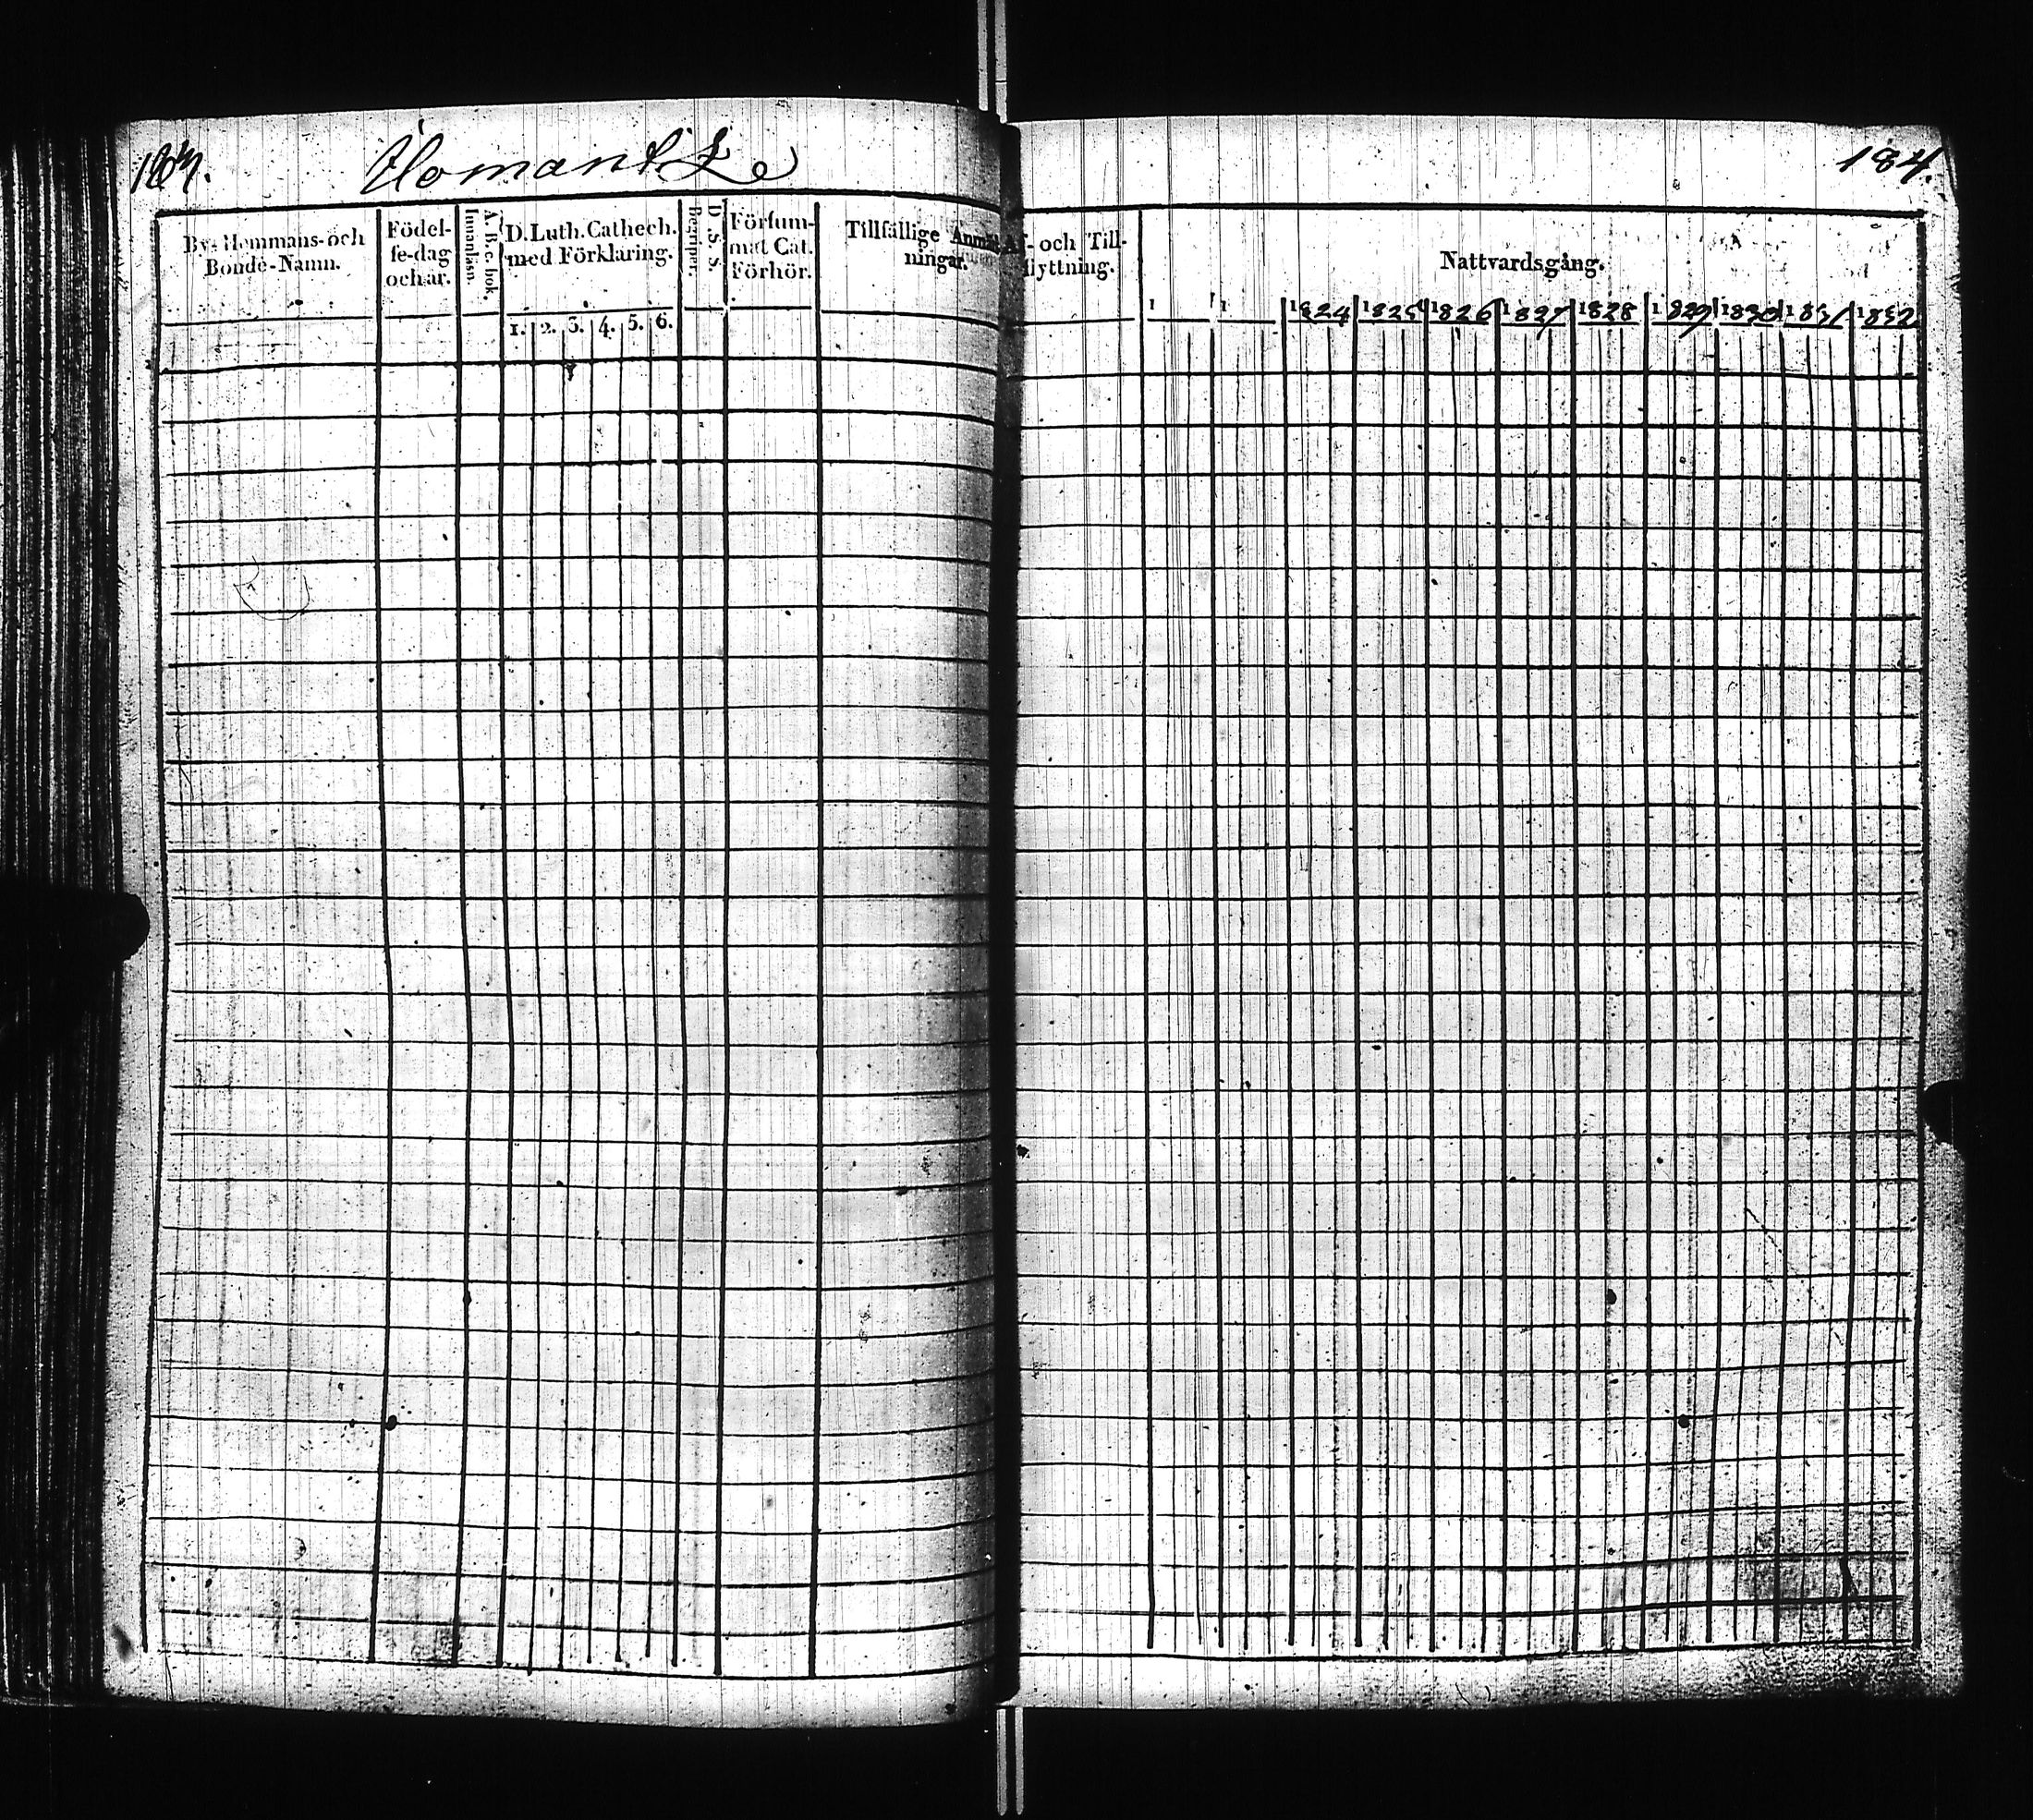 183.
Ilomants Ee
By- Hemmans- och Bonde-Namn.
Födel-se-dag och år.
A. B. c. bok. Innanläsn.
D. Luth. Cathech. med Förklaring.
1. 2. 3. 4. 5. 6.
D. S. S. Begriper.
Försum-mat Cat. Förhör.
Tillfällige Anmärk-ningar.
184.
Af- och Till-flyttning.
Nattvardsgång.
1 1 1824 1825 1826 1827 1828 1829 1830 1831 1832